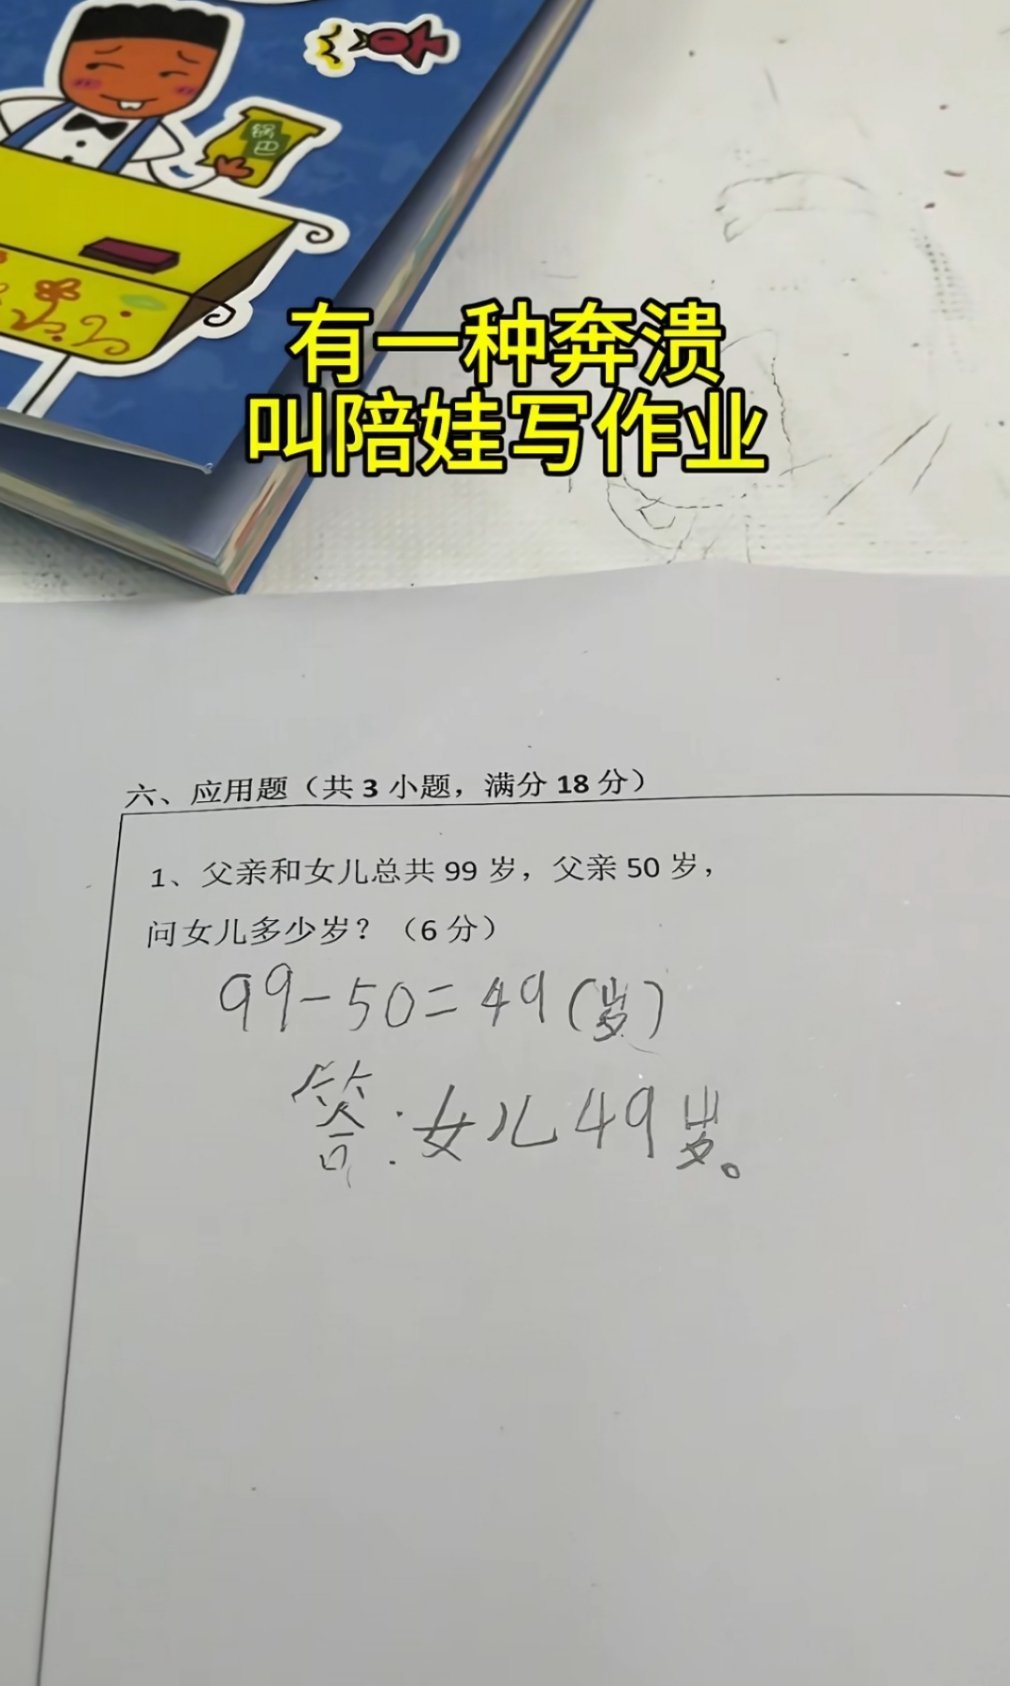 锅
巴
有一种奔溃
叫陪娃写作业
六、应用题（共 3 小题，满分 18 分）
1、父亲和女儿总共 99 岁，父亲 50 岁，
问女儿多少岁？（6 分）
99-50=49(岁)
答:女儿49岁。